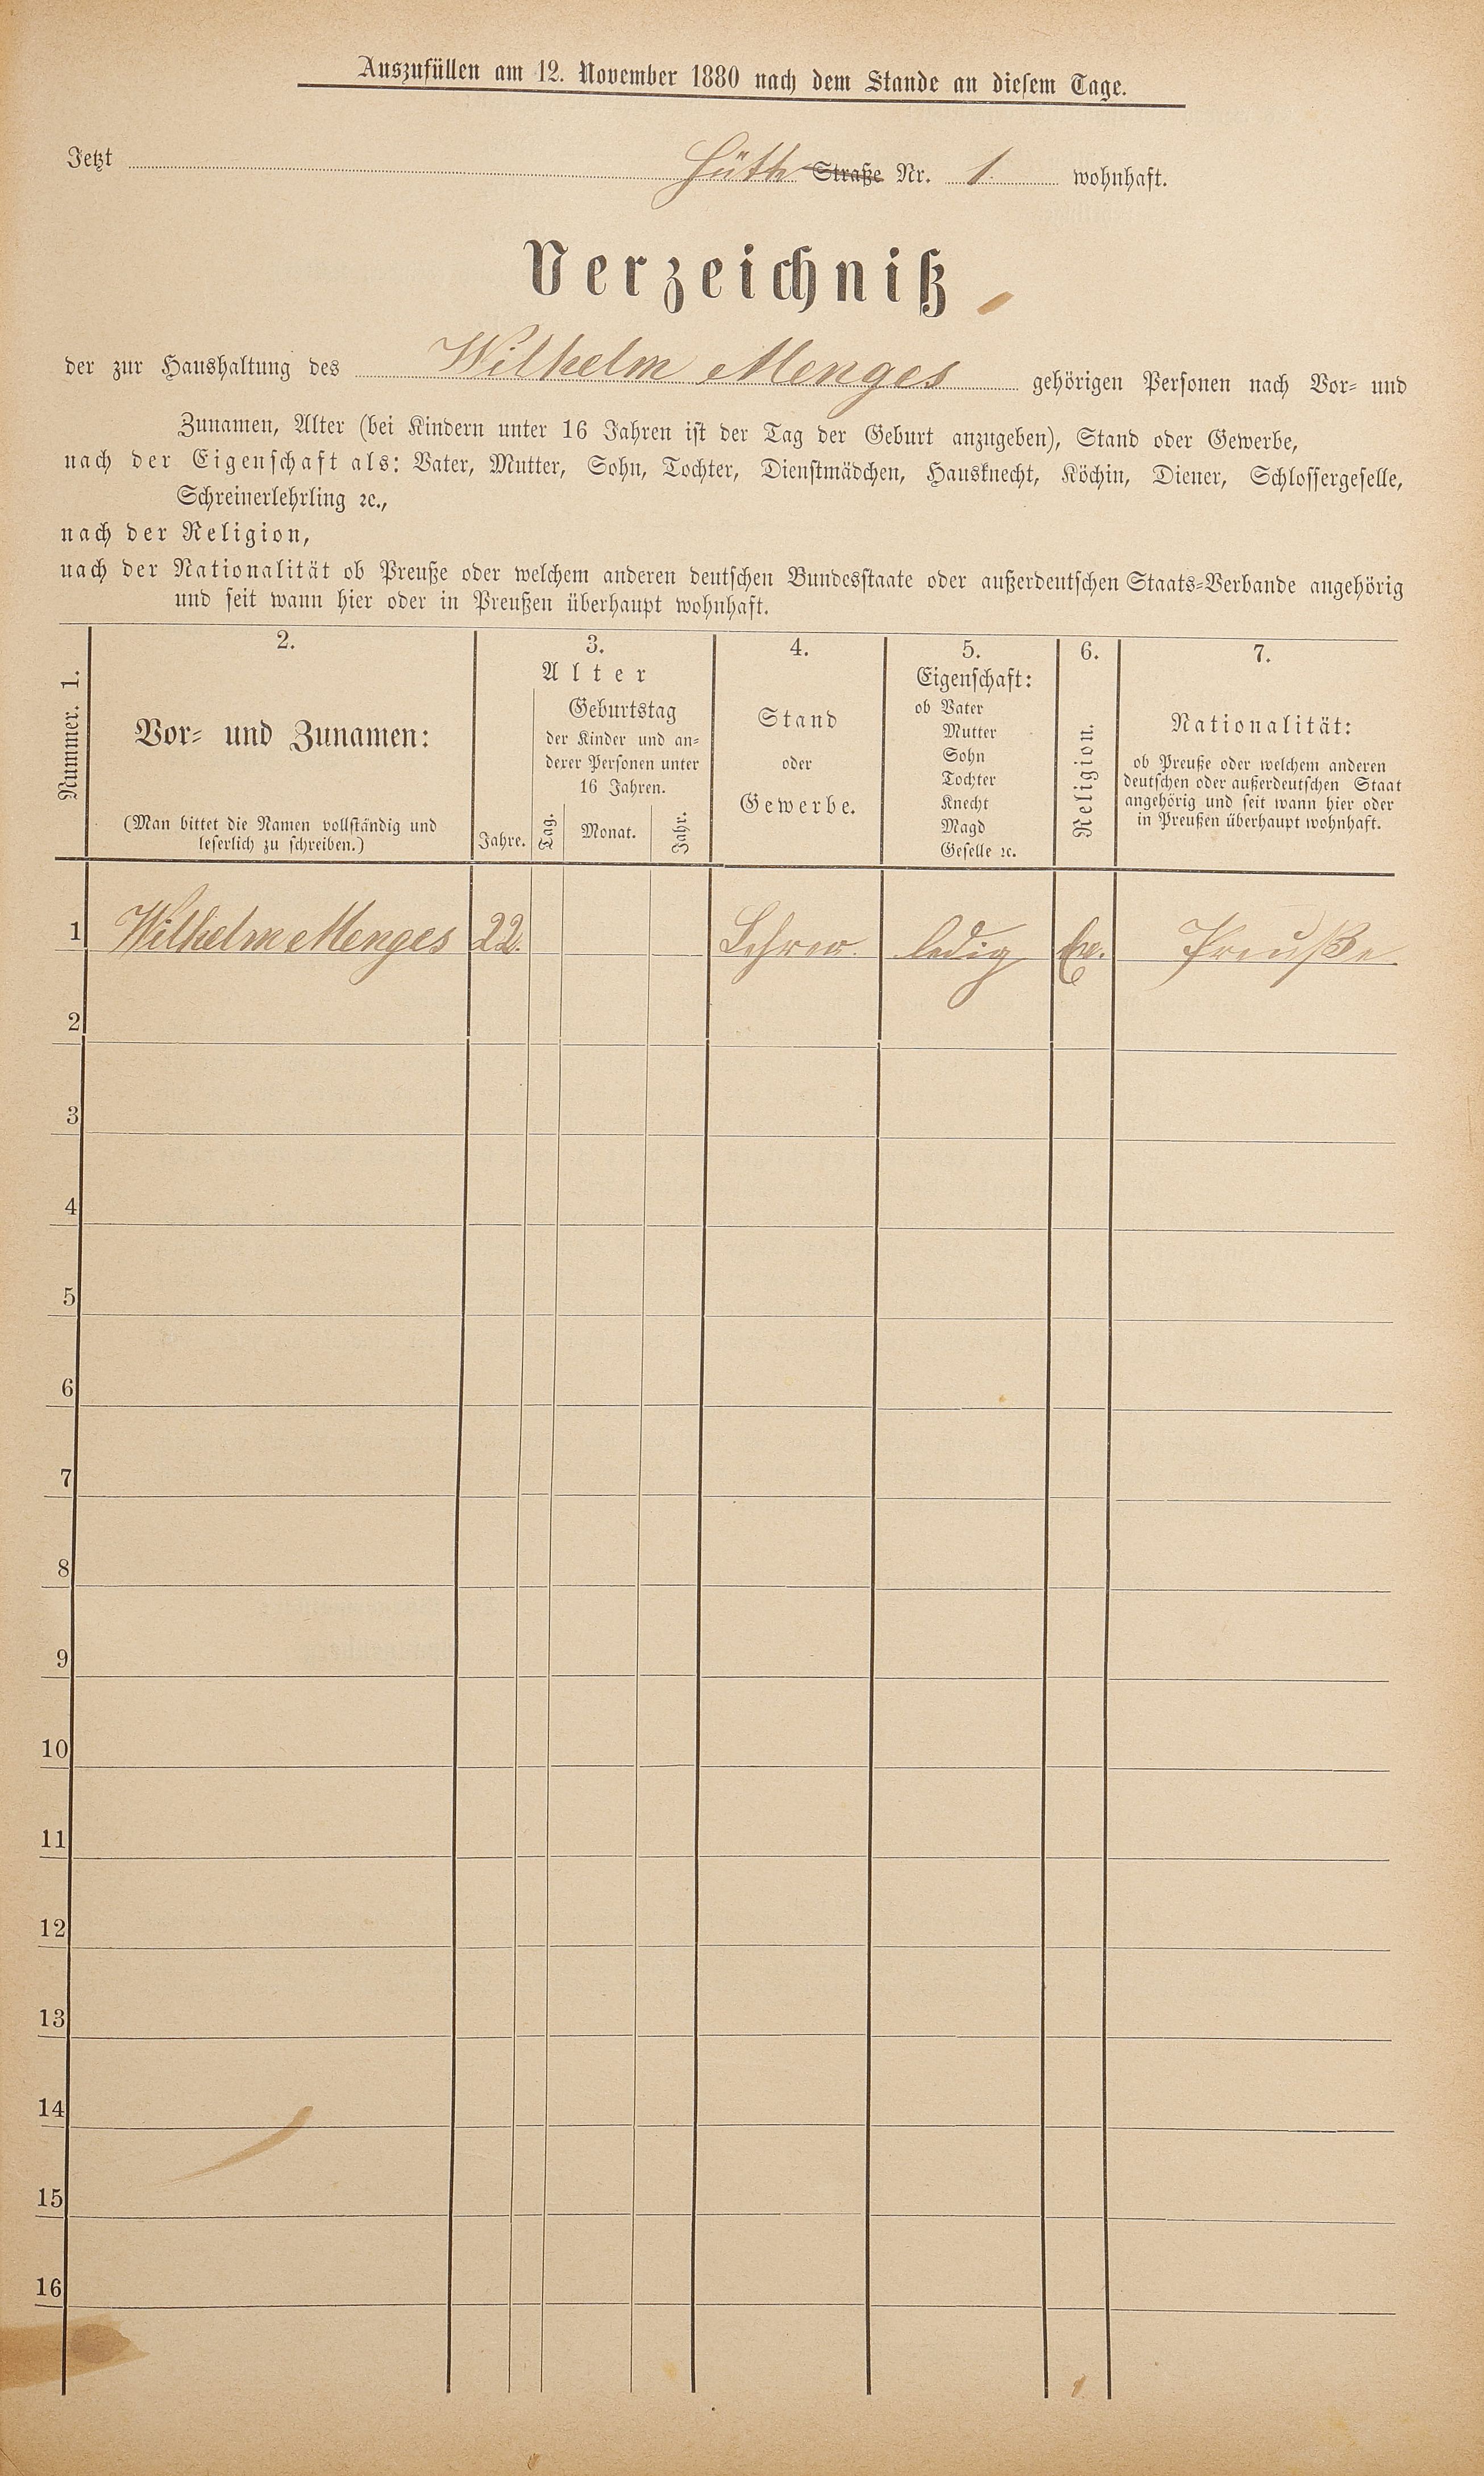 Auszufüllen am 12. November 1880 nach dem Stande an diesem Tage.
Jetzt Hütte Straße Nr. 1 wohnhaft.
Verzeichniß
der zur Haushaltung des Wilhelm Menges gehörigen Personen nach Vor- und
Zunamen, Alter (bei Kindern unter 16 Jahren ist der Tag der Geburt anzugeben), Stand oder Gewerbe,
nach der Eigenschaft als: Vater, Mutter, Sohn, Tochter, Dienstmädchen, Hausknecht, Köchin, Diener, Schlossergeselle,
Schreinerlehrling ꝛc.,
nach der Religion,
nach der Nationalität ob Preuße oder welchem anderen deutschen Bundesstaate oder außerdeutschen Staats-Verbande angehörig
und seit wann hier oder in Preußen überhaupt wohnhaft.
Nummer. 1.
2.
Vor- und Zunamen:
(Man bittet die Namen vollständig und
leserlich zu schreiben.)
3.
Alter
Jahre.
Geburtstag
der Kinder und an-
derer Personen unter
16 Jahren.
Tag.
Monat.
Jahr.
4.
Stand
oder
Gewerbe.
5.
Eigenschaft:
ob Vater
Mutter
Sohn
Tochter
Knecht
Magd
Geselle ꝛc.
6.
Religion.
7.
Nationalität:
ob Preuße oder welchem anderen
deutschen oder außerdeutschen Staat
angehörig und seit wann hier oder
in Preußen überhaupt wohnhaft.
1 Wilhelm Menges 22. Lehrer. ledig Ev. Preuße
2
3
4
5
6
7
8
9
10
11
12
13
14
15
16